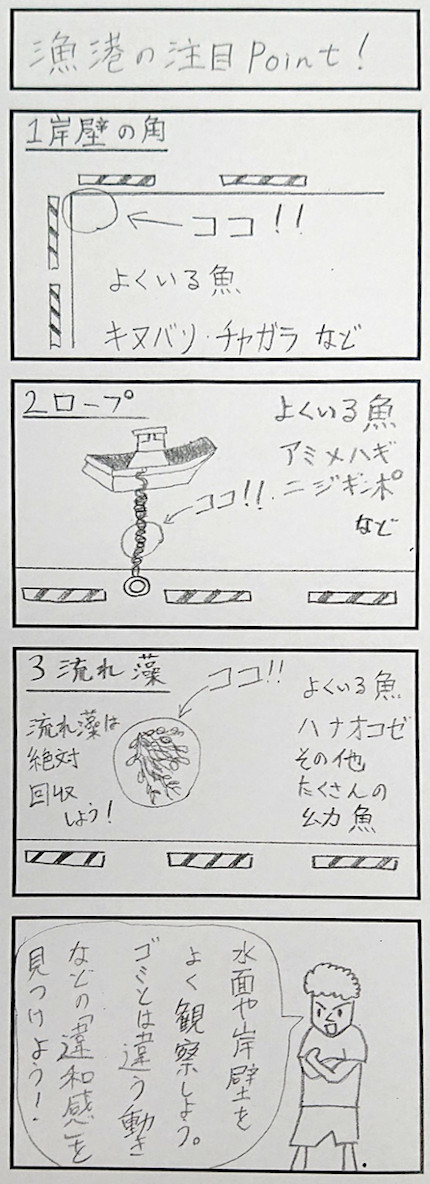 漁港の注目Point!
1岸壁の角
ココ!!
よくいる魚
キヌバリ・チャガラ など
2ロープ
よくいる魚
アミメハギ
ニジギンポ
など
ココ!!
3流れ藻
ココ!!
流れ藻は
絶対
回収
しよう!
よくいる魚
ハナオコゼ
その他
たくさんの
幼魚
水面や岸壁を
よく観察しよう。
ゴミとは違う動き
などの「違和感」を
見つけよう!